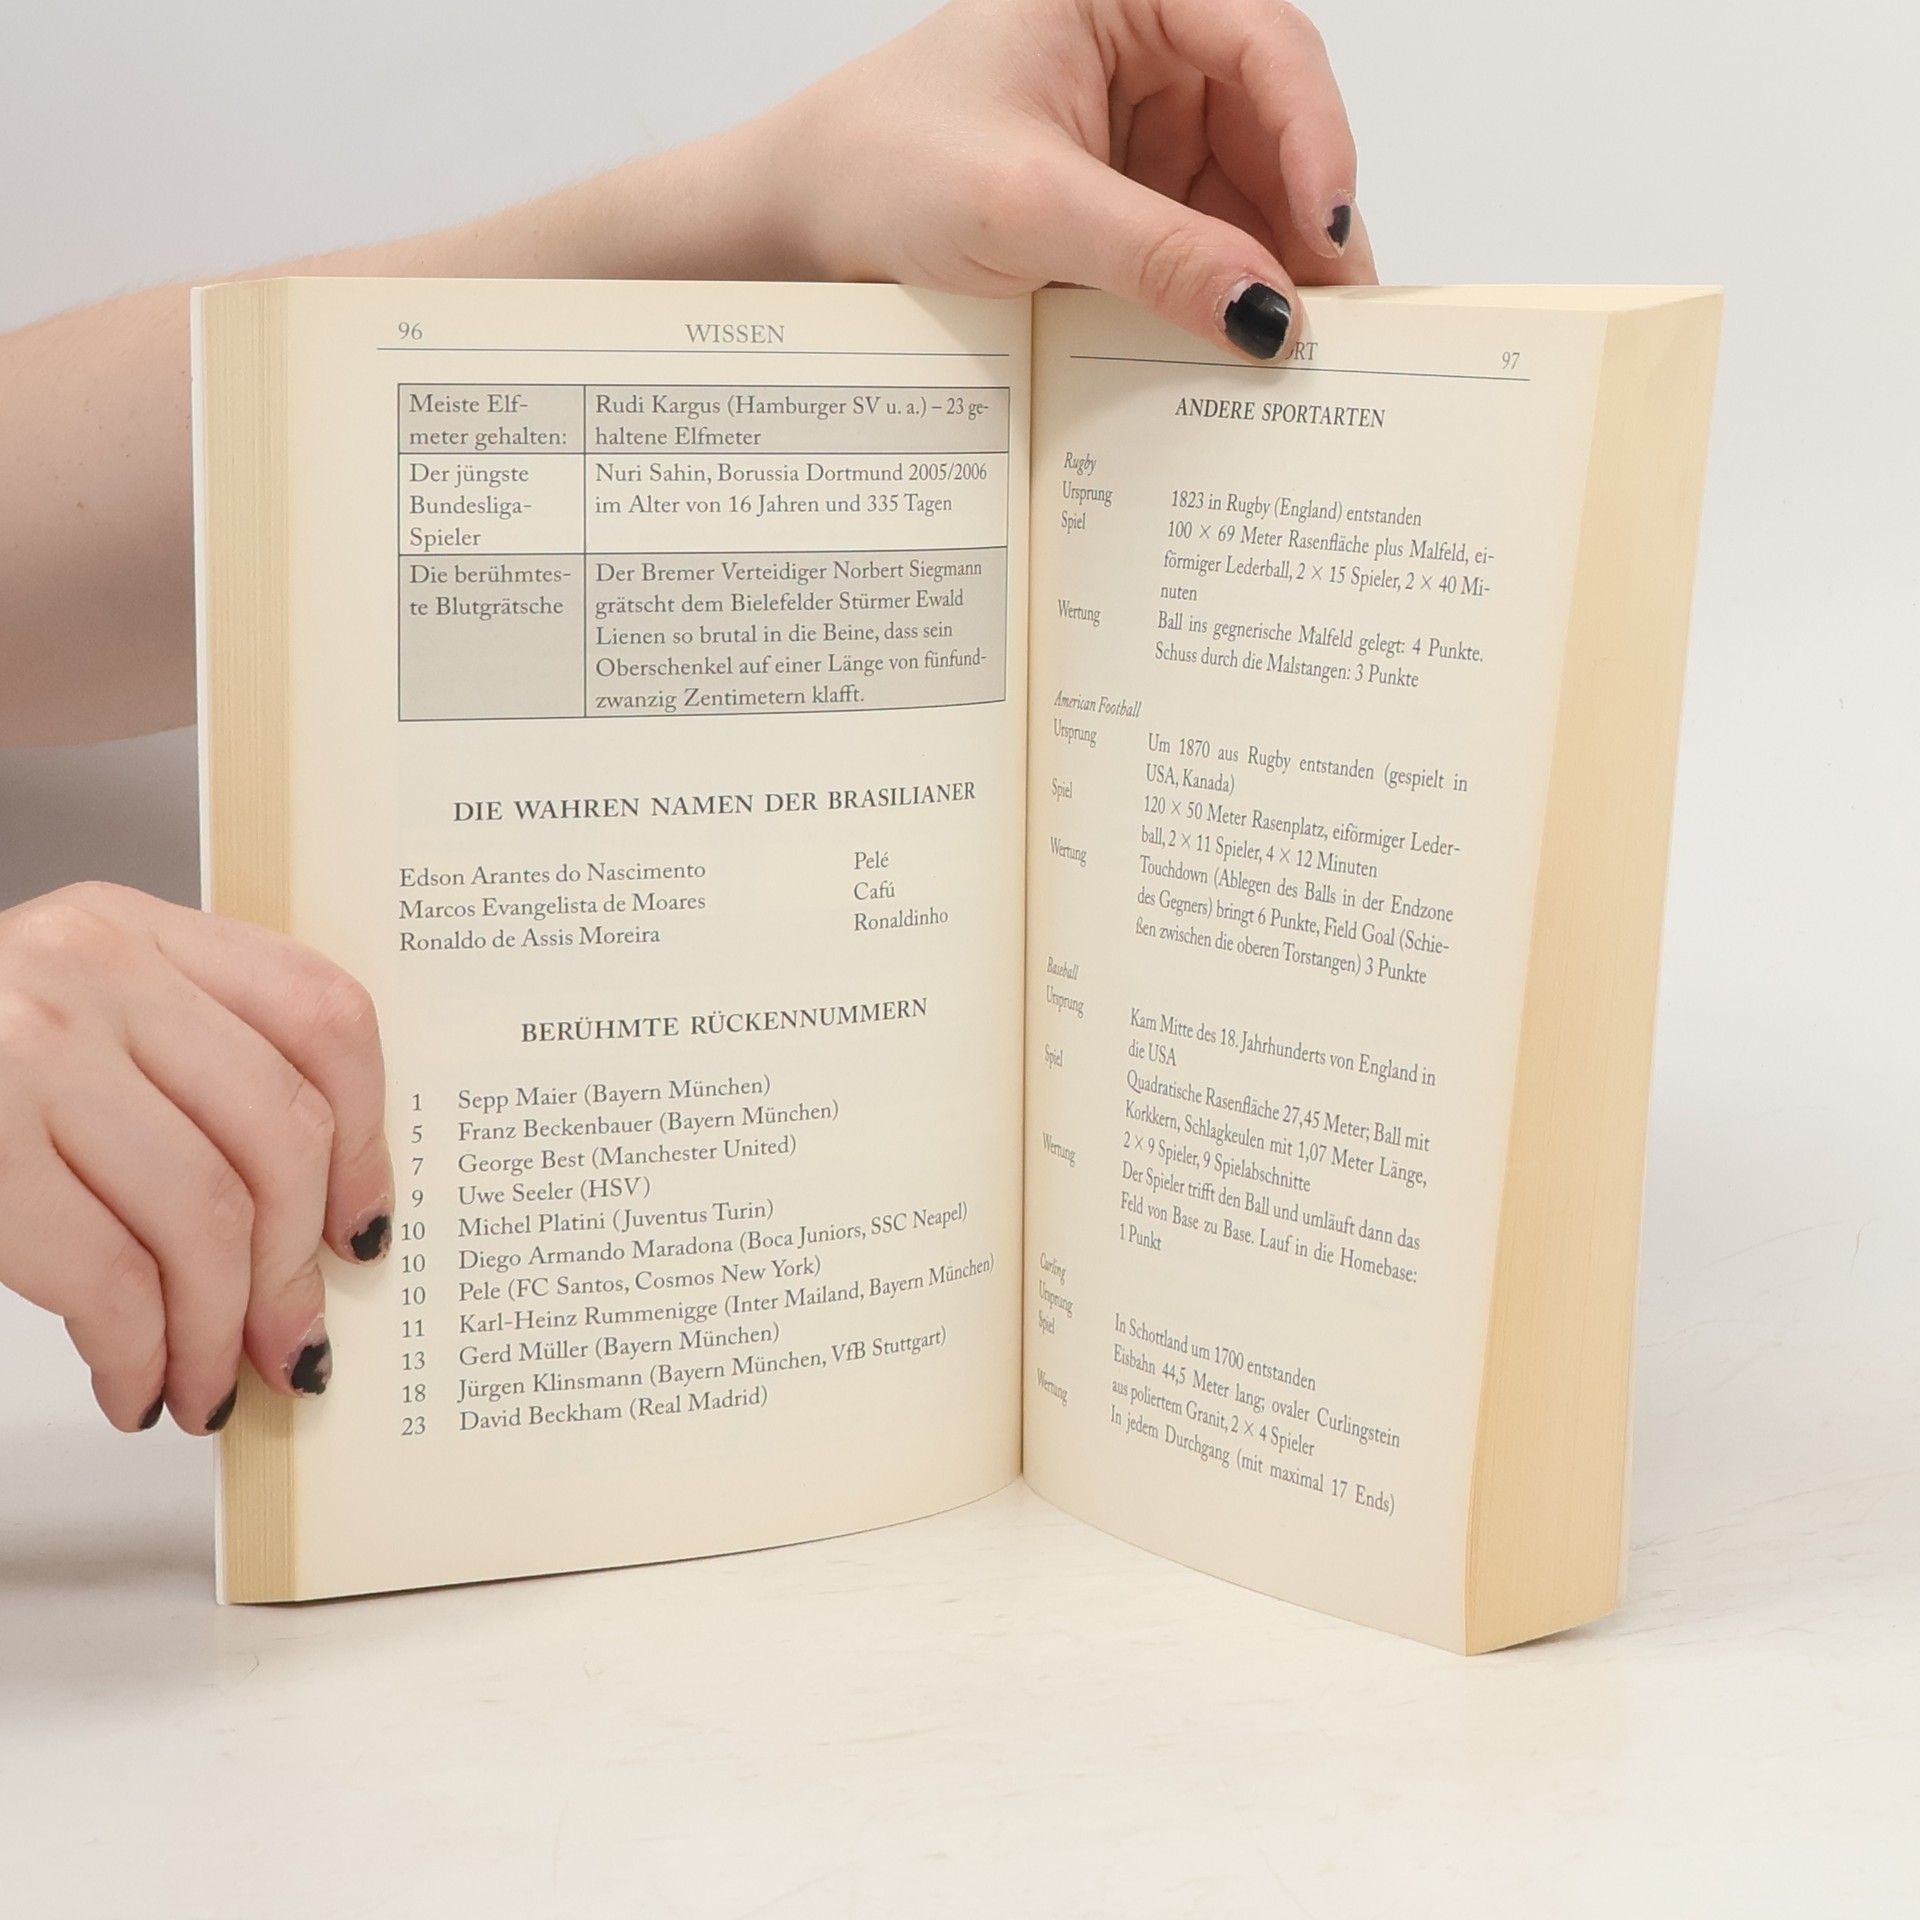 96 WISSEN
Meiste Elf-
meter gehalten:
Rudi Kargus (Hamburger SV u. a.) – 23 ge-
haltene Elfmeter
Der jüngste
Bundesliga-
Spieler
Nuri Sahin, Borussia Dortmund 2005/2006
im Alter von 16 Jahren und 335 Tagen
Die berühmtes-
te Blutgrätsche
Der Bremer Verteidiger Norbert Siegmann
grätscht dem Bielefelder Stürmer Ewald
Lienen so brutal in die Beine, dass sein
Oberschenkel auf einer Länge von fünfund-
zwanzig Zentimetern klafft.
DIE WAHREN NAMEN DER BRASILIANER
Edson Arantes do Nascimento Pelé
Marcos Evangelista de Moares Cafú
Ronaldo de Assis Moreira Ronaldinho
BERÜHMTE RÜCKENNUMMERN
1 Sepp Maier (Bayern München)
5 Franz Beckenbauer (Bayern München)
7 George Best (Manchester United)
9 Uwe Seeler (HSV)
10 Michel Platini (Juventus Turin)
10 Diego Armando Maradona (Boca Juniors, SSC Neapel)
10 Pele (FC Santos, Cosmos New York)
11 Karl-Heinz Rummenigge (Inter Mailand, Bayern München)
13 Gerd Müller (Bayern München)
18 Jürgen Klinsmann (Bayern München, VfB Stuttgart)
23 David Beckham (Real Madrid)
97
ANDERE SPORTARTEN
Rugby
Ursprung 1823 in Rugby (England) entstanden
Spiel 100 × 69 Meter Rasenfläche plus Malfeld, ei-
förmiger Lederball, 2 × 15 Spieler, 2 × 40 Mi-
nuten
Wertung Ball ins gegnerische Malfeld gelegt: 4 Punkte.
Schuss durch die Malstangen: 3 Punkte
American Football
Ursprung Um 1870 aus Rugby entstanden (gespielt in
USA, Kanada)
Spiel 120 × 50 Meter Rasenplatz, eiförmiger Leder-
ball, 2 × 11 Spieler, 4 × 12 Minuten
Wertung Touchdown (Ablegen des Balls in der Endzone
des Gegners) bringt 6 Punkte, Field Goal (Schie-
ßen zwischen die oberen Torstangen) 3 Punkte
Baseball
Ursprung Kam Mitte des 18. Jahrhunderts von England in
die USA
Spiel Quadratische Rasenfläche 27,45 Meter; Ball mit
Korkkern, Schlagkeulen mit 1,07 Meter Länge,
2 × 9 Spieler, 9 Spielabschnitte
Wertung Der Spieler trifft den Ball und umläuft dann das
Feld von Base zu Base. Lauf in die Homebase:
1 Punkt
Curling
Ursprung In Schottland um 1700 entstanden
Spiel Eisbahn 44,5 Meter lang; ovaler Curlingstein
aus poliertem Granit, 2 × 4 Spieler
Wertung In jedem Durchgang (mit maximal 17 Ends)